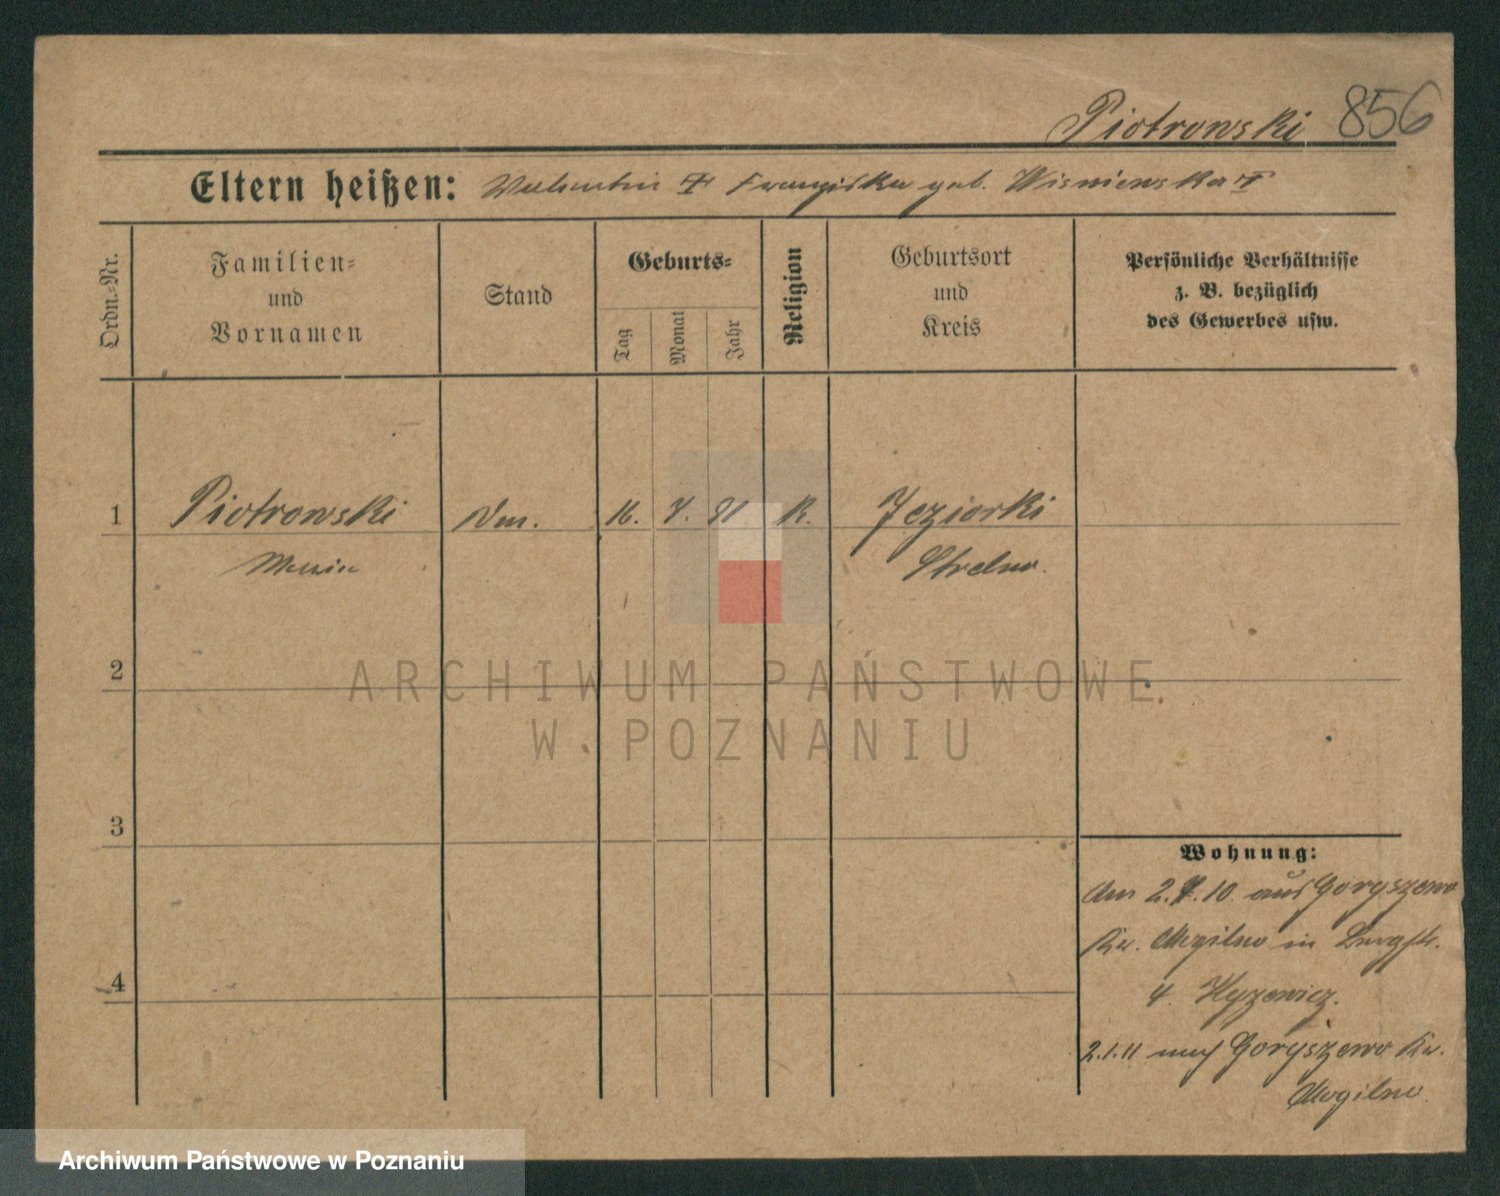 Piotrowski 856
Eltern heißen: Valentin Franziska geb. Wisniewska
Ordn.-Nr.
Familien-
und
Vornamen
Stand
Geburts-
Tag
Monat
Jahr
Religion
Geburtsort
und
Kreis
Persönliche Verhältnisse
z. B. bezüglich
des Gewerbes usw.
1 Piotrowski 16. 7. 81 K. Jeziorki
Strelno.
2
3
4
ARCHIWUM PAŃSTWOWE
W POZNANIU
Wohnung:
Am 2. 10. aus Goryszewo
Kr. Mogilno in Burgstr.
4.
2.1.11 nach Goryszewo Kr.
Mogilno.
Archiwum Państwowe w Poznaniu